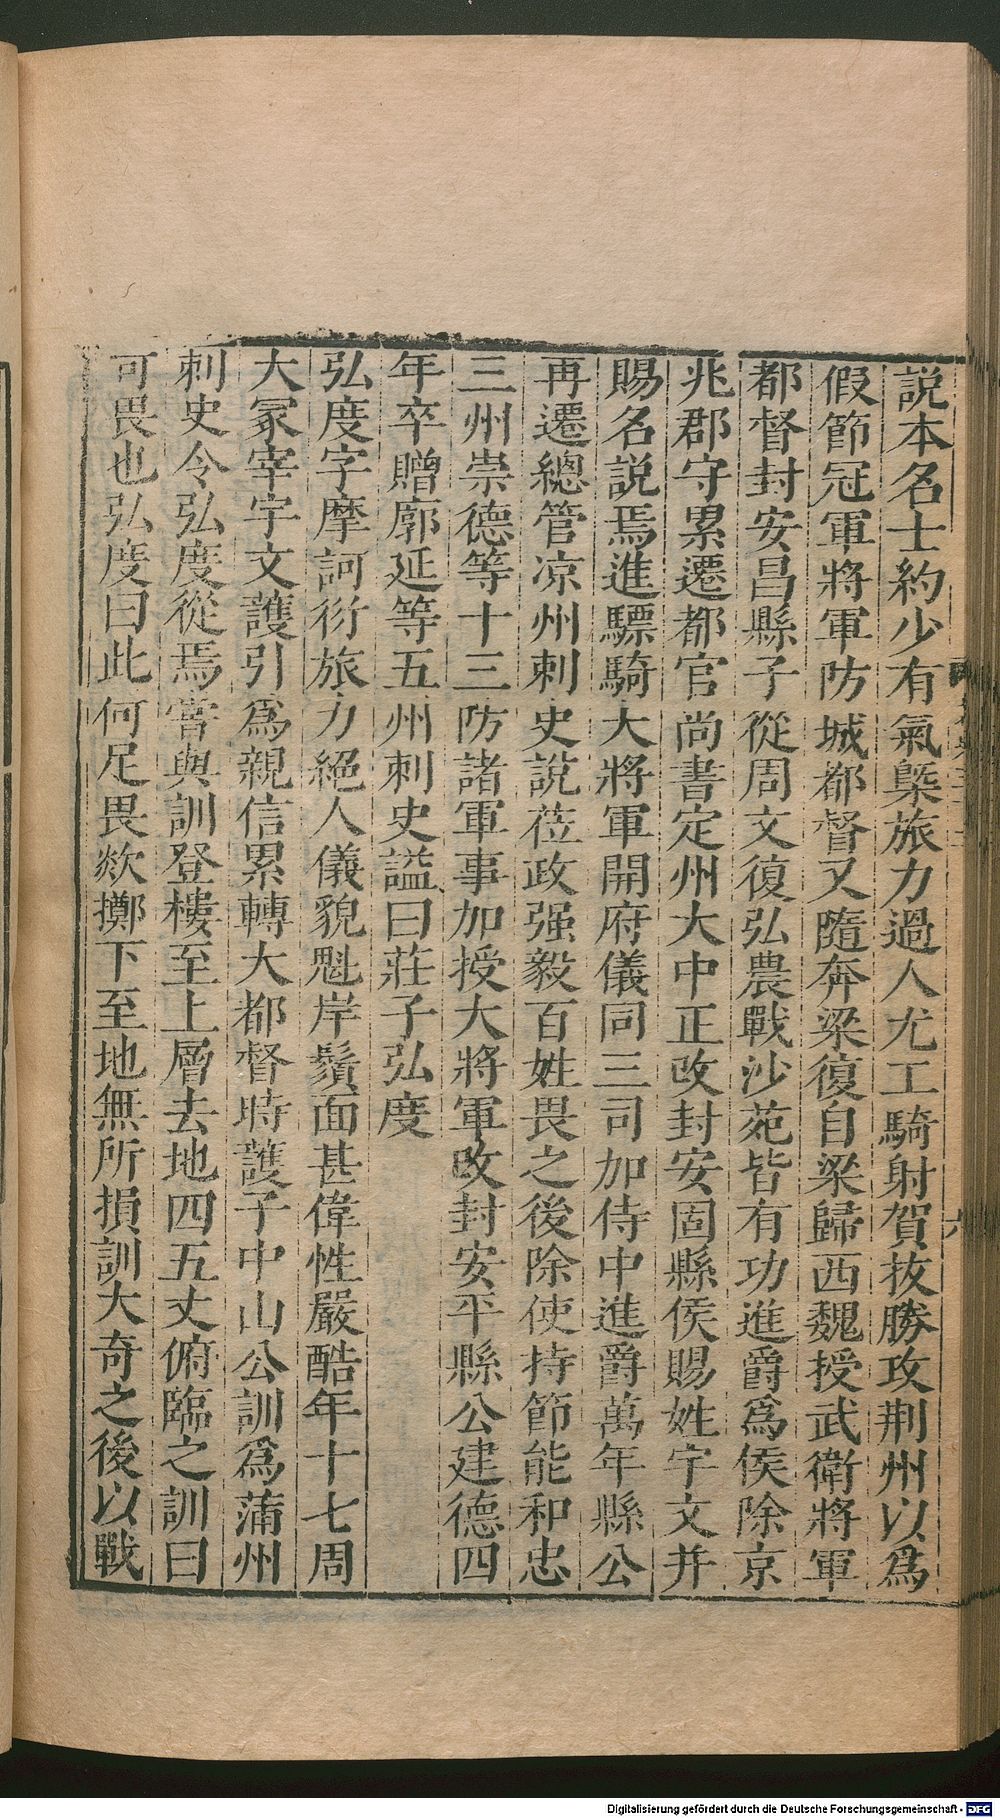 説本名士約少有氣槩旅力過人尤工騎射賀抜勝攻荆州以爲
假節冠軍將軍防城都督又隨奔梁復自梁歸西魏授武衛將軍
都督封安昌縣子從周文復弘農戰沙苑皆有功進爵爲侯除京
兆郡守累遷都官尚書定州大中正改封安固縣侯賜姓宇文并
賜名説焉進驃騎大將軍開府儀同三司加侍中進爵萬年縣公
再遷總管凉州刺史説莅政强毅百姓畏之後除使持節能和忠
三州崇德等十三防諸軍事加授大將軍改封安平縣公建德四
年卒贈廓延等五州刺史謚曰莊子弘度
弘度字摩訶衍旅力絕人儀貌魁岸鬚面甚偉性嚴酷年十七周
大冢宰宇文護引爲親信累轉大都督時護子中山公訓爲蒲州
刺史令弘度從焉嘗與訓登樓至上層去地四五丈俯臨之訓曰
可畏也弘度曰此何足畏欻擲下至地無所損訓大奇之後以戰
六
Digitalisierung gefördert durch die Deutsche Forschungsgemeinschaft - DFG